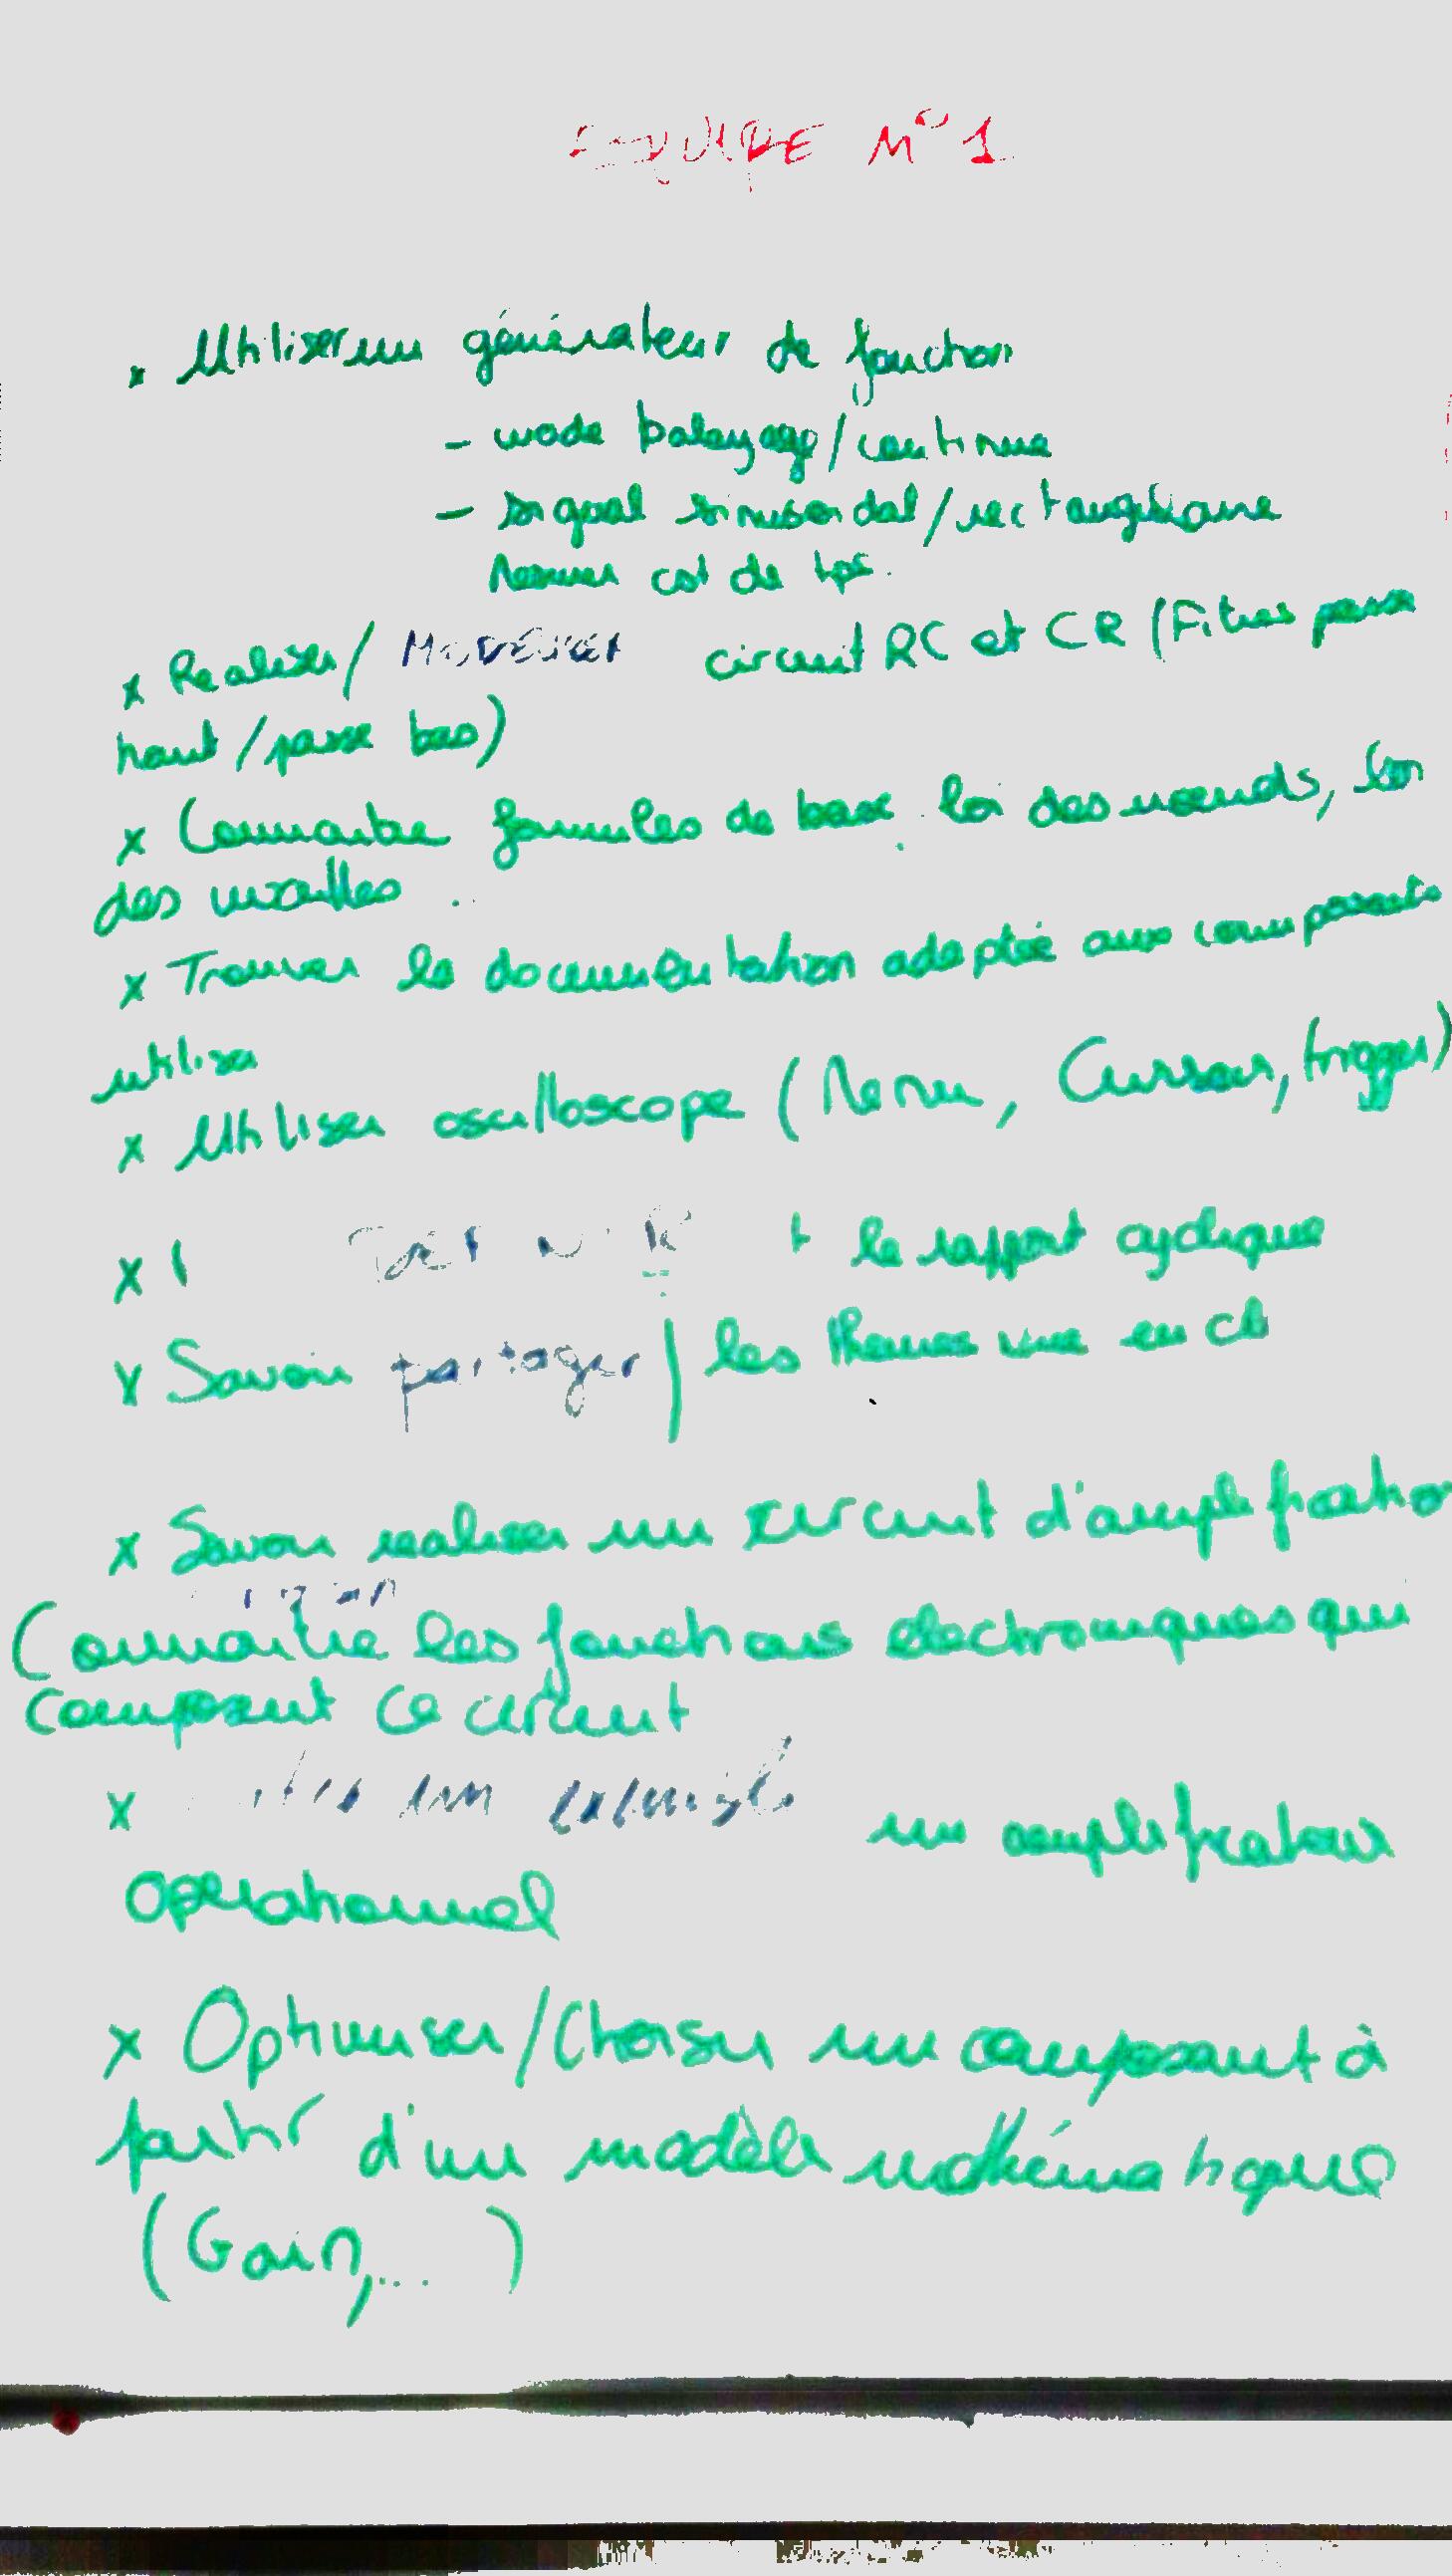 EQUIPE N°1
x Utiliser un générateur de fonction
- mode balayage/continue
- signal sinusoidal/rectangulaire
Mesurer cst de tps.
x Realiser/ MODELISER circuit RC et CR (Filtres passe
haut/passe bas)
x Connaitre formules de base : loi des noeuds, loi
des mailles.
x Trouver la documentation adaptée aux composants
utiliser
x Utiliser oscilloscope (Menu, Curseur, trigger)
x le rapport cyclique
x Savoir partager les themes vue en
x Savoir realiser un circuit d'amplification
Connaitre les fonctions electroniques qui
composent ce circuit
x un un amplificateur
operationnel
x Optimiser/Choisir un composant à
partir d'un modèle mathématique
(Gain,... )